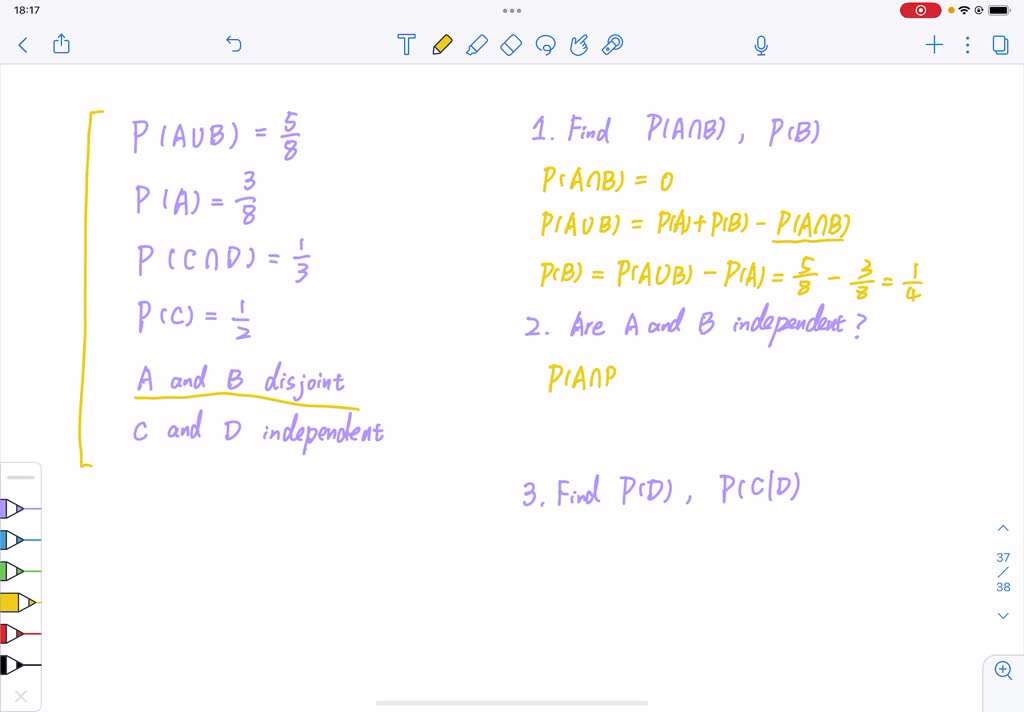 18:17
P(A∪B) = 5/8
P(A) = 3/8
P(C∩D) = 1/3
P(C) = 1/2
A and B disjoint
C and D independent
1. Find P(A∩B), P(B)
P(A∩B) = 0
P(A∪B) = P(A)+P(B) - P(A∩B)
P(B) = P(A∪B) - P(A) = 5/8 - 3/8 = 1/4
2. Are A and B independent?
P(A∩P
3. Find P(D), P(C|D)
37
/
38